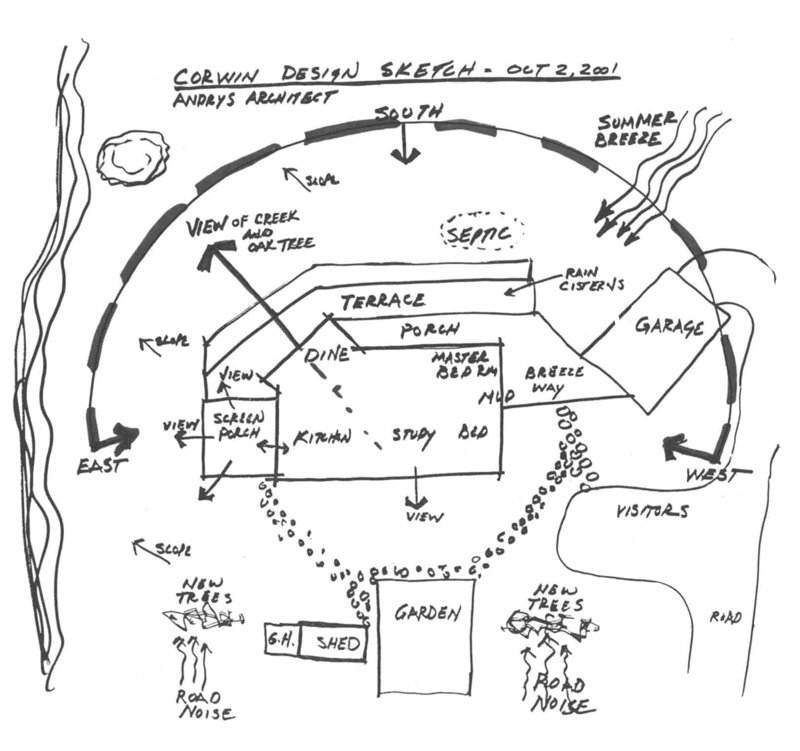 CORWIN DESIGN SKETCH - OCT 2, 2001
ANDRYS ARCHITECT
SOUTH
SUMMER
BREEZE
SLOPE
VIEW OF CREEK
AND
OAK TREE
SEPTIC
RAIN
CISTERNS
TERRACE
GARAGE
PORCH
SLOPE
DINE
MASTER
BED RM
VIEW
BREEZE
WAY
MUD
SCREEN
PORCH
VIEW
KITCHEN
STUDY
BED
EAST
WEST
VIEW
VISITORS
SLOPE
NEW
TREES
NEW
TREES
GARDEN
ROAD
G.H.
SHED
ROAD
NOISE
ROAD
NOISE